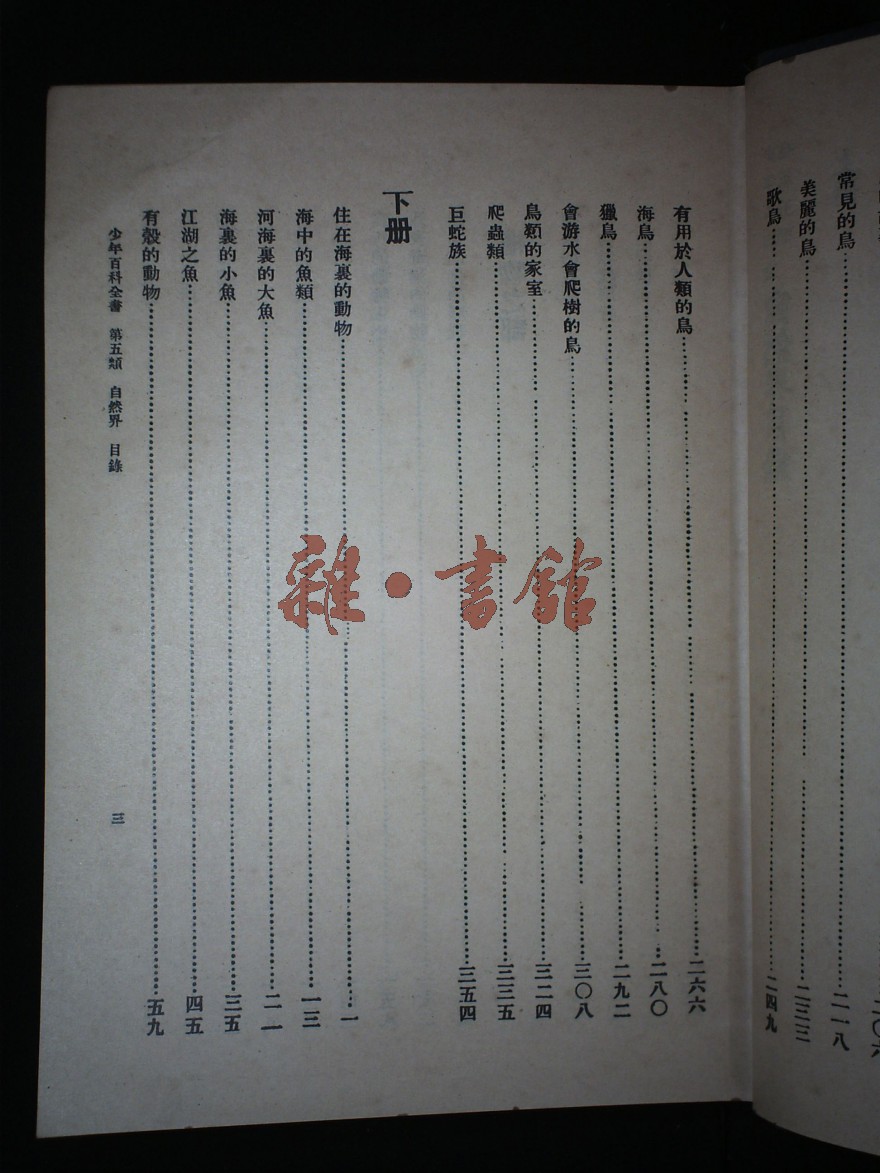 常見的鳥……二一八
美麗的鳥……二三三
歌鳥……二四九
有用於人類的鳥……二六六
海鳥……二八〇
獵鳥……二九二
會游水會爬樹的鳥……三〇八
鳥類的家室……三二四
爬蟲類……三三五
巨蛇族……三五四
下册
住在海裏的動物……一
海中的魚類……一三
河海裏的大魚……二一
海裏的小魚……三五
江湖之魚……四五
有殼的動物……五九
少年百科全書 第五類 自然界 目錄
三
雜·書館